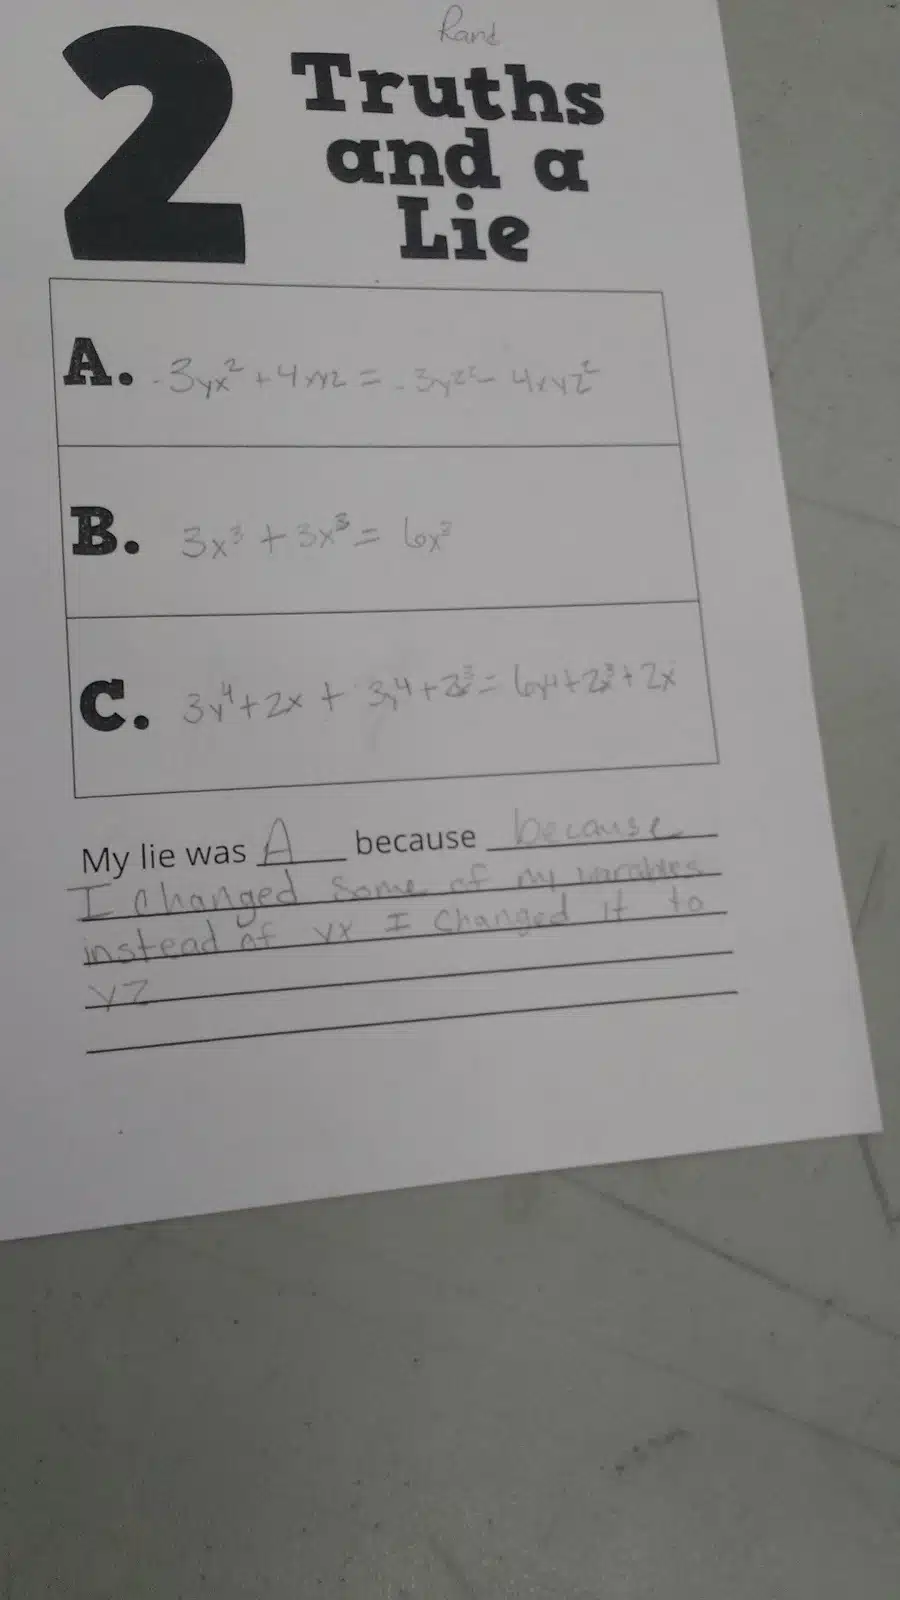 Rand
2 Truths
and a
Lie
A. -3yx² + 4xyz = -3yz² - 4xyz²
B. 3x³ + 3x³ = 6x³
C. 3y⁴ + 2x + 3y⁴ + 2x³ = 6y⁴ + 2x³ + 2x
My lie was A because because
I changed some of my varables
instead of yx I changed it to
yz